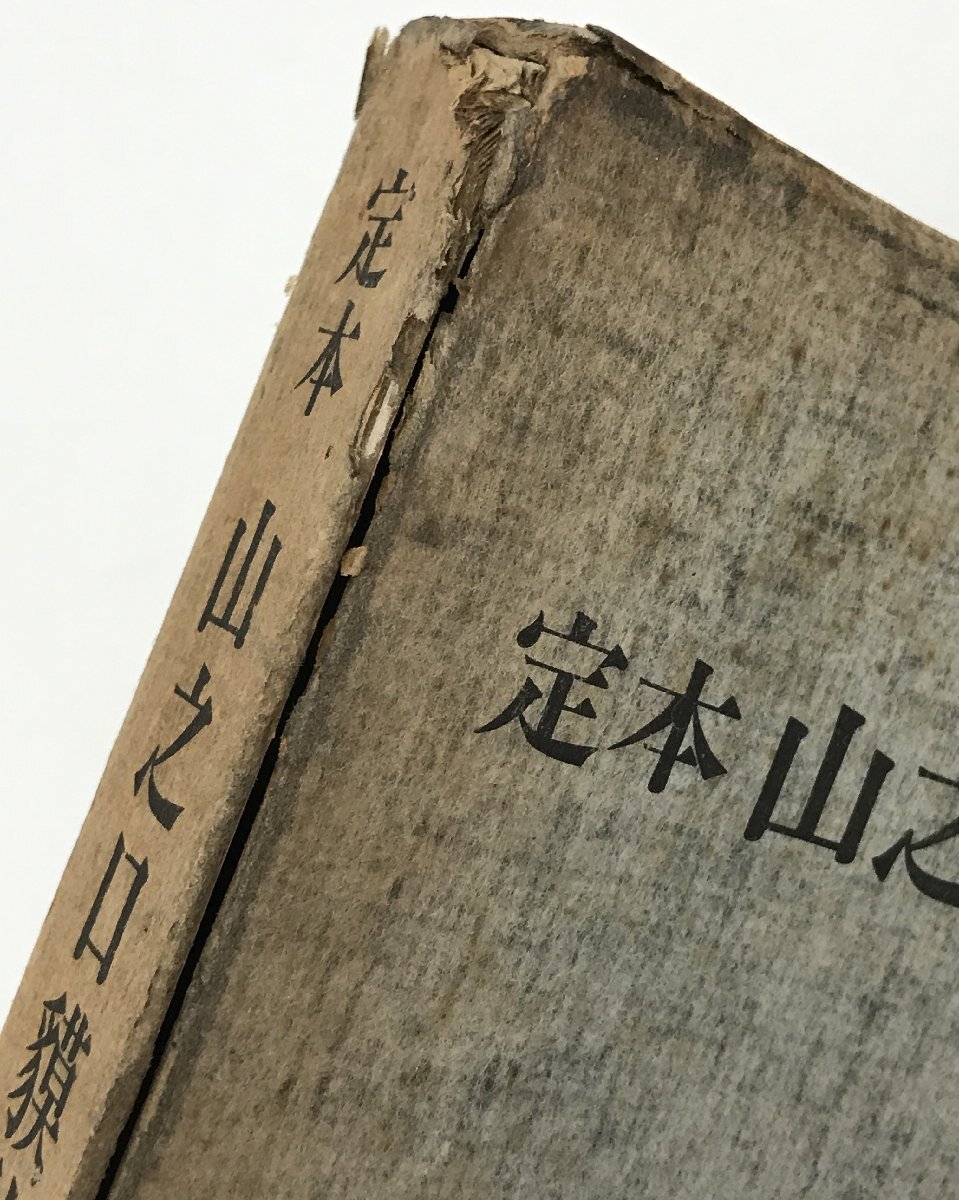 定本 山之口貘
定本山之